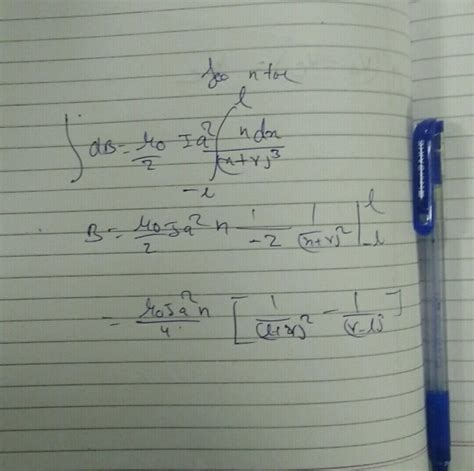 for n +ve
∫ dB = μ₀/2 Ia² ∫_{-l}^{l} n dx/(x+r)³
B = μ₀Ia²/2 n 1/-2 1/(x+r)² |_{-l}^{l}
= μ₀Ia²n/4 [1/(l+r)² - 1/(r-l)²]